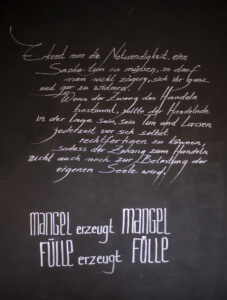 Erkennt man die Notwendigkeit, eine
Sache tun zu müssen, so darf
man nicht zögern, sich ihr ganz
und gar zu widmen!
Wenn der Zwang des Handeln
bestimmt, sollte der Handelnde
in der Lage sein, sein Tun und Lassen
jederzeit vor sich selbst
rechtfertigen zu können,
sodass der Zwang zum Handeln
nicht auch noch zur Belastung der
eigenen Seele wird.
MANGEL erzeugt MANGEL
FÜLLE erzeugt FÜLLE